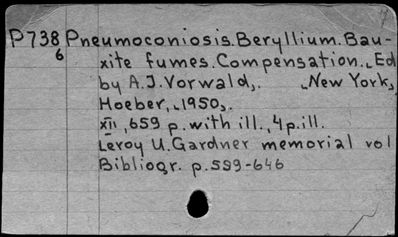 P738 Pneumoconiosis.Beryllium.Bau-
6 xite fumes.Compensation. Ed
by A.J.Vorwald,. New York,
Hoeber, 1950,.
XII, 659 p. with ill., 4 p.ill.
Leroy U.Gardner memorial vol
Bibliogr. p.599-646